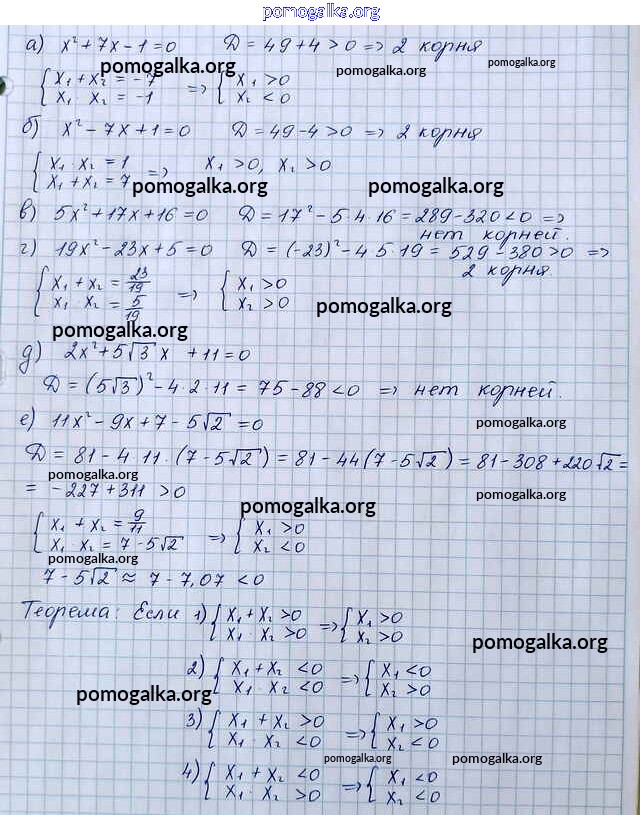 pomogalka.org
а) x² + 7x - 1 = 0 Д = 49 + 4 > 0 => 2 корня
pomogalka.org pomogalka.org pomogalka.org
{ x₁ + x₂ = -7 => { x₁ > 0
x₁ x₂ = -1 x₂ < 0
б) x² - 7x + 1 = 0 Д = 49 - 4 > 0 => 2 корня
{ x₁ · x₂ = 1 => x₁ > 0, x₂ > 0
x₁ + x₂ = 7
pomogalka.org pomogalka.org
в) 5x² + 17x + 16 = 0 Д = 17² - 5·4·16 = 289 - 320 < 0 =>
нет корней.
г) 19x² - 23x + 5 = 0 Д = (-23)² - 4·5·19 = 529 - 380 > 0 =>
2 корня.
{ x₁ + x₂ = 23/19 => { x₁ > 0
x₁ · x₂ = 5/19 x₂ > 0
pomogalka.org
pomogalka.org
д) 2x² + 5√3 x + 11 = 0
Д = (5√3)² - 4·2·11 = 75 - 88 < 0 => нет корней.
е) 11x² - 9x + 7 - 5√2 = 0
pomogalka.org
Д = 81 - 4·11·(7 - 5√2) = 81 - 44(7 - 5√2) = 81 - 308 + 220√2 =
pomogalka.org
= -227 + 311 > 0
pomogalka.org
pomogalka.org
{ x₁ + x₂ = 9/11 => { x₁ > 0
x₁ · x₂ = 7 - 5√2 x₂ < 0
pomogalka.org
7 - 5√2 ≈ 7 - 7,07 < 0
Теорема: Если 1) { x₁ + x₂ > 0 => { x₁ > 0
x₁ · x₂ > 0 x₂ > 0
pomogalka.org
2) { x₁ + x₂ < 0 => { x₁ < 0
x₁ · x₂ < 0 x₂ > 0
pomogalka.org
3) { x₁ + x₂ > 0 => { x₁ > 0
x₁ · x₂ < 0 x₂ < 0
pomogalka.org pomogalka.org
4) { x₁ + x₂ < 0 => { x₁ < 0
x₁ · x₂ > 0 x₂ < 0